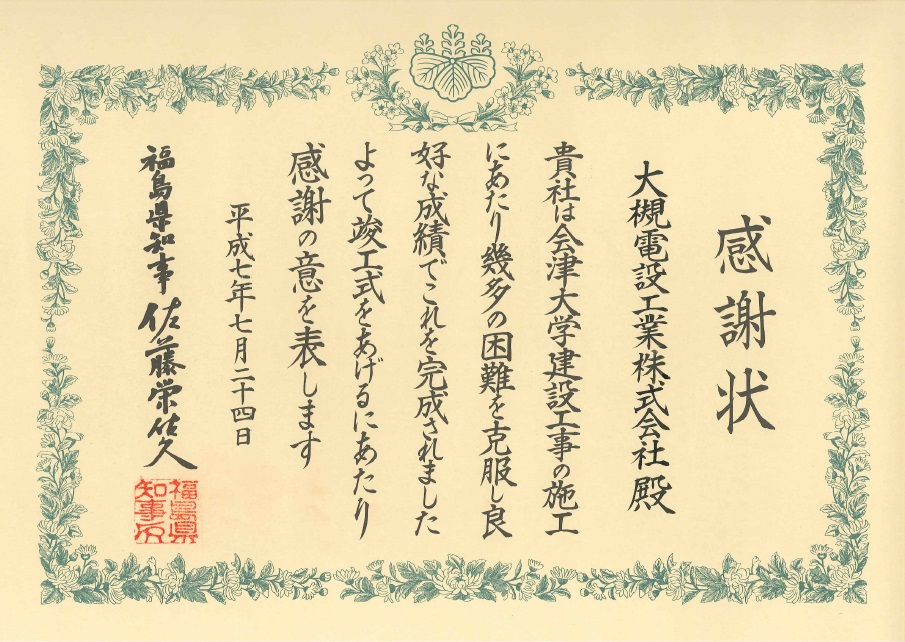 感謝状
大槻電設工業株式会社殿
貴社は会津大学建設工事の施工
にあたり幾多の困難を克服し良
好な成績でこれを完成されました
よって竣工式をあげるにあたり
感謝の意を表します
平成七年七月二十四日
福島県知事 佐藤栄佐久
福島県
知事之印